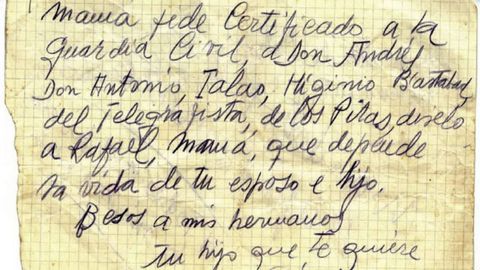 Mamá pide Certificado a la
Guardia Civil, a Don Andrés
Don Antonio, Talao, Higinio
del Telegrafista, de los Pitas, diselo
a Rafael, Mamá, que depende
la vida de tu esposo e hijo.
Besos a mis hermanos
Tu hijo que te quiere